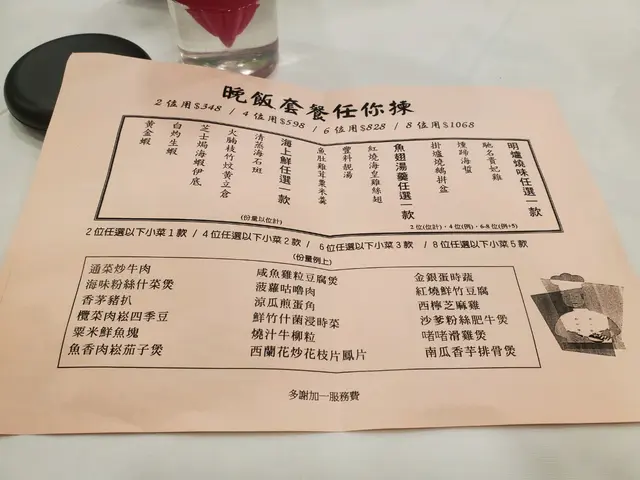 晚飯套餐任你揀
2 位用 $348 / 4 位用 $598 / 6 位用 $828 / 8 位用 $1068
明爐燒味任選一款
馳名貴妃雞
燻蹄海蜇
掛爐燒鵝拼盆
魚翅湯羹任選一款
紅燒海皇雞絲翅
豐料靚湯
魚肚雞茸粟米羹
海上鮮任選一款
清蒸海石斑
火腩枝竹炆黃立倉
芝士焗海蝦伊底
白灼生蝦
黃金蝦
2 位(位計)，4 位(例)，6-8 位(例+5)
(份量以位計)
2 位任選以下小菜 1 款 / 4 位任選以下小菜 2 款 / 6 位任選以下小菜 3 款 / 8 位任選以下小菜 5 款
(份量例上)
通菜炒牛肉 咸魚雞粒豆腐煲 金銀蛋時蔬
海味粉絲什菜煲 菠蘿咕嚕肉 紅燒鮮竹豆腐
香茅豬扒 涼瓜煎蛋角 西檸芝麻雞
欖菜肉崧四季豆 鮮竹什菌浸時菜 沙爹粉絲肥牛煲
粟米鮮魚塊 燒汁牛柳粒 啫啫滑雞煲
魚香肉崧茄子煲 西蘭花炒花枝片鳳片 南瓜香芋排骨煲
多謝加一服務費